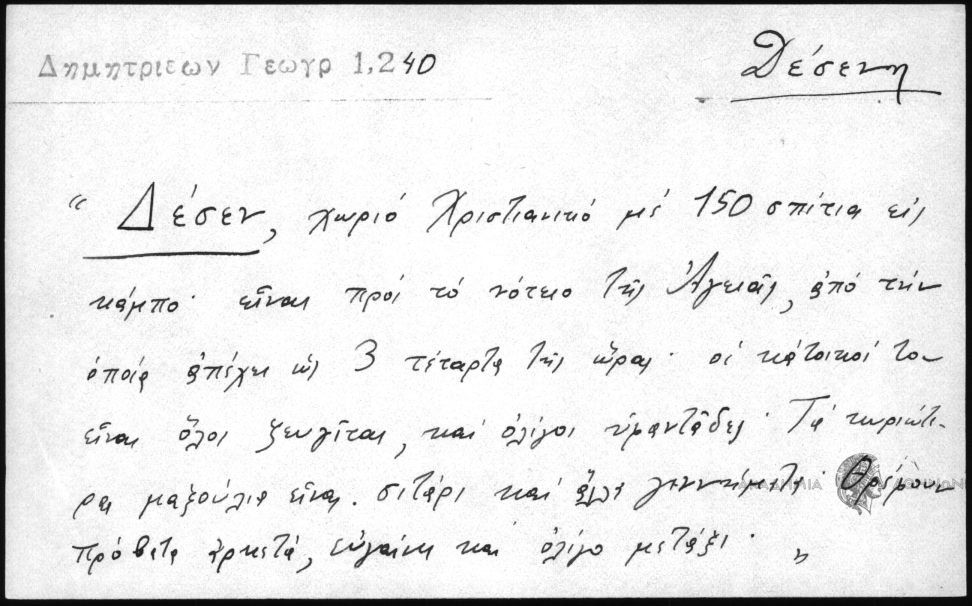 Δημητριεων Γεωγρ 1,240
Δέσενη
"Δέσεν, χωριό Χριστιανικό μέ 150 σπίτια είς
κάμπο· εἶναι πρός τό νότειο τῆς Ἁγειᾶς, ἀπό τήν
ὁποία ἀπέχει ὡς 3 τέταρτα τῆς ὥρας· οἱ κάτοικοί του
εἶναι ὅλοι ζευγῖται, καί ὀλίγοι ὑφαντάδες· Τά κυριώτε-
ρα μαξούλια εἶναι σιτάρι καί ἄλλα γεννήματα· Θρέφουν
πρόβατα ἀρκετά, εὐγαίνει καί ὀλίγο μετάξι· "